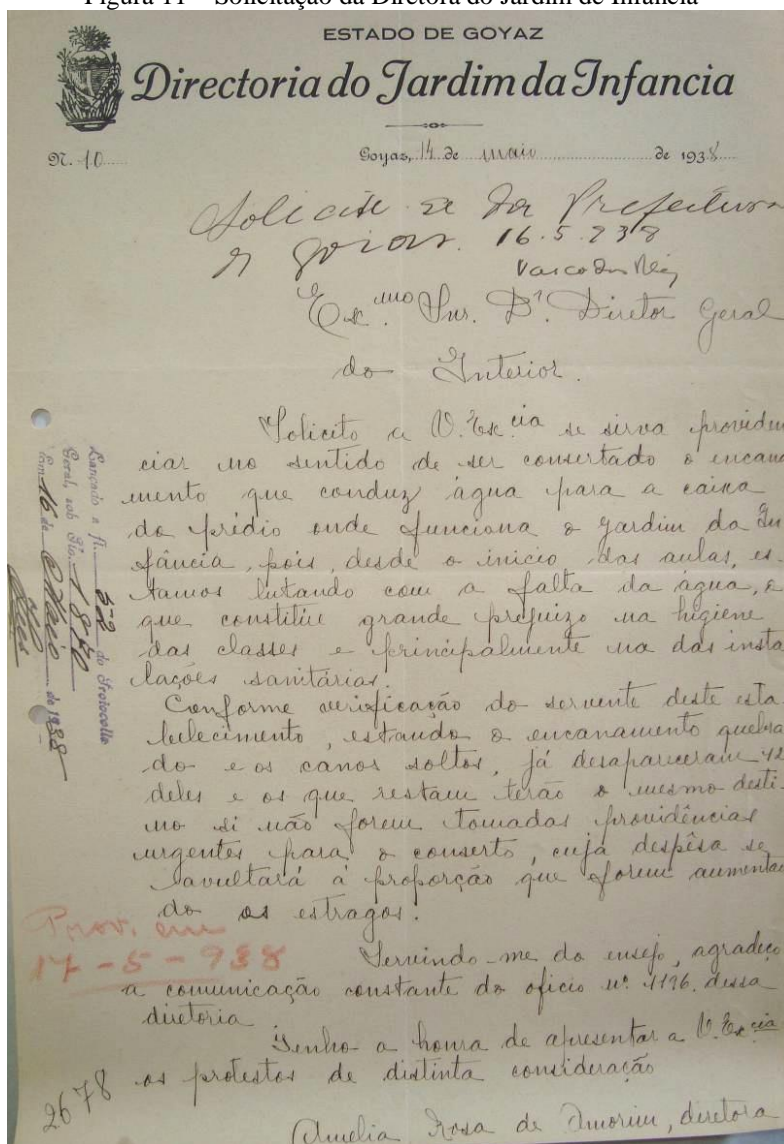 Figura 11 – Solicitação da Diretora do Jardim de Infância
ESTADO DE GOYAZ
Directoria do Jardim da Infancia
N. 10
Goyaz, 14 de maio de 1938
Solicite se da Prefeitura
de Goiaz. 16.5.938
Vasco dos Reis
Ex.mo Snr. Dr. Diretor Geral
do Interior.
Solicito a V. Ex.cia se sirva providen
ciar no sentido de ser consertado o encana
mento que conduz água para a caixa
do prédio onde funciona o Jardim da In
fância, pois, desde o inicio das aulas, es-
tamos lutando com a falta da água, o
que constitúe grande prejuizo na higiene
das classes e principalmente na das insta
lações sanitárias.
Conforme verificação do servente deste esta-
belecimento, estando o encanamento quebra
do e os canos soltos, já desapareceram 12
deles e os que restam terão o mesmo desti-
no si não forem tomadas providências
urgentes para o conserto, cuja despêsa se
avultará à proporção que forem aumentan
do os estragos.
Servindo-me do ensejo, agradeço
a comunicação constante do oficio nº 1196. dessa
diretoria
Tenho a honra de apresentar a V. Ex.cia
os protestos de distinta consideração
Amelia Rosa de Amorim, diretora
Lançado a fl. 52 do Protocollo
Geral, sob No.
Em 16 de Maio de 1938
Prov. em
17-5-938
2678